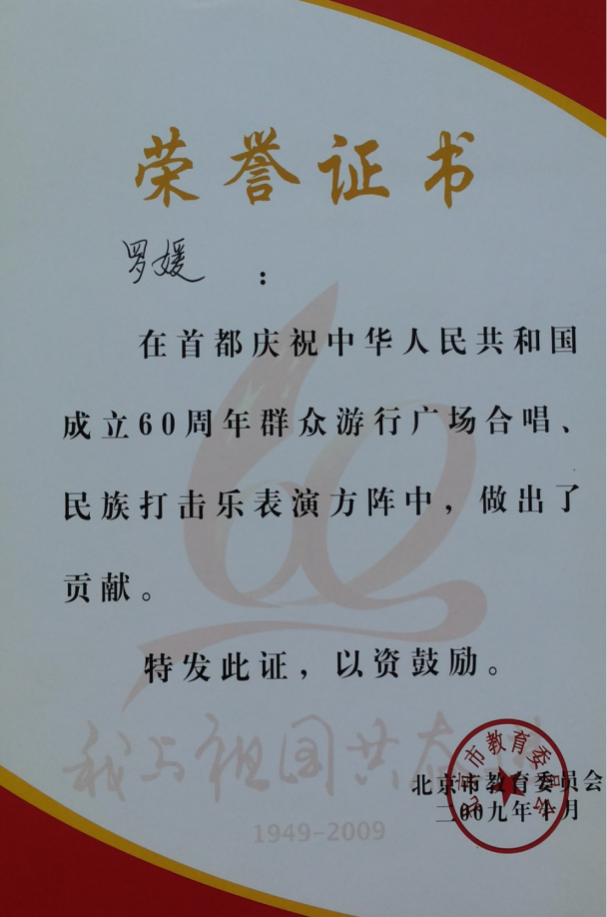 荣誉证书
罗媛 :
在首都庆祝中华人民共和国
成立60周年群众游行广场合唱、
民族打击乐表演方阵中，做出了
贡献。
特发此证，以资鼓励。
我与祖国共奋进
1949-2009
北京市教育委员会
二00九年十月
北京市教育委员会